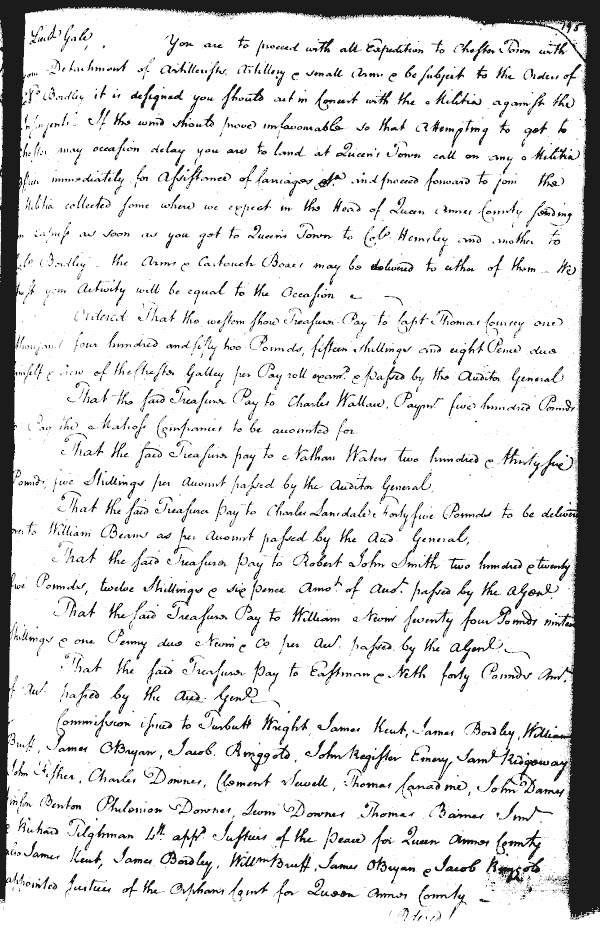 195
Lieut Gale, You are to proceed with all Expedition to Chester Town with
your Detachment of Artillerists, Artillery & small Arms & be subject to the Orders of
Bordley it is designed you should act in Concert with the Militia against the
Insurgents. If the wind should prove unfavourable so that Attempting to get to
Chester may occasion delay you are to land at Queen's Town call on any Militia
officer immediately for Assistance of Carriages &c. and proceed forward to join the
Militia collected some where we expect in the Head of Queen Annes County sending
an express as soon as you got to Queen's Town to Colo. Hemsley and another to
Colo Bordley - the Arms & Cartouch Boxes may be delivered to either of them - We
trust your Activity will be equal to the Occasion
Ordered That the western shore Treasurer Pay to Capt Thomas Coursey one
thousand four hundred and fifty two Pounds, fifteen shillings and eight Pence due
himself & Crew of the Chester Galley per Pay roll examd. & passed by the Auditor General
That the said Treasurer Pay to Charles Wallace, Paymr. five hundred Pounds
to Pay the Matross Companies to be accounted for
That the said Treasurer pay to Nathan Waters two hundred & thirty five
Pounds, five Shillings per Account passed by the Auditor General,
That the said Treasurer pay to Charles Lansdale Forty five Pounds to be delivered
over to William Beams as per Account passed by the Aud General,
That the said Treasurer pay to Robert John Smith two hundred & twenty
five Pounds, twelve Shillings & six pence Amot. of Acct. passed by the A Genl.
That the said Treasurer Pay to William Nevin seventy four Pounds nineteen
shillings & one Penny due Nevin & Co per Acct. passed by the A Genl.
That the said Treasurer Pay to Eastman & Neth forty Pounds Amt.
of Acct. passed by the Aud. Genl.
Commission issued to Turbutt Wright, James Kent, James Bordley, William
Bruff, James OBryan, Jacob Ringgold, John Register Emory, Saml. Ridgeway
John Fisher, Charles Downes, Clement Sewell, Thomas John Dames
Benton Philemon Downes, Downes Thomas Barnes Junr
& Richard Tilghman 4th appd. Justices of the Peace for Queen Annes County
also James Kent, James Bordley, Willm Bruff, James OBryan & Jacob Ringgold
appointed Justices of the Orphans Court for Queen Annes County -
Ordered